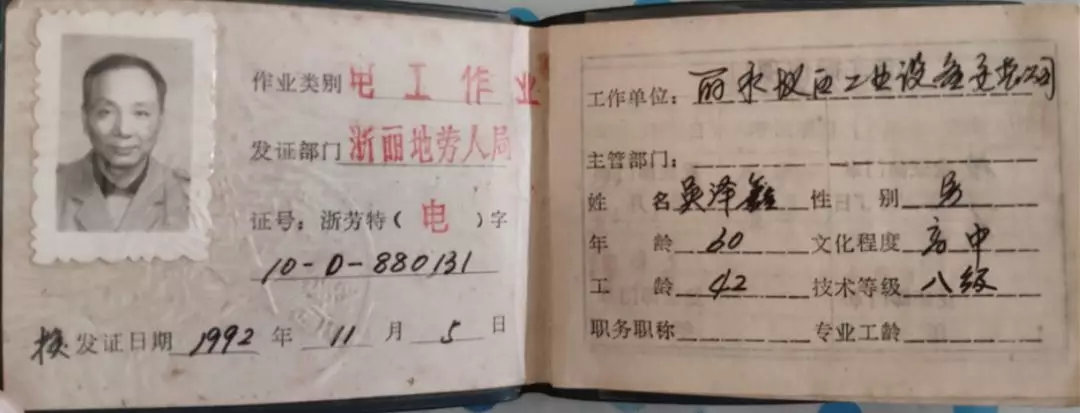 作业类别 电工作业
发证部门 浙丽地劳人局
证号：浙劳特（电）字
10-D-880131
换发证日期 1992 年 11 月 5 日
工作单位：丽水地区工业设备安装公司
主管部门：
姓名 吴泽鑫 性别 男
年龄 60 文化程度 高中
工龄 42 技术等级 八级
职务职称 专业工龄